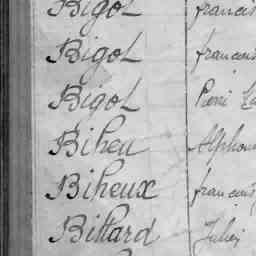 Bigot francis
Bigot francois
Bigot Pierre
Biheu Alphon
Biheux francois
Billard Jules